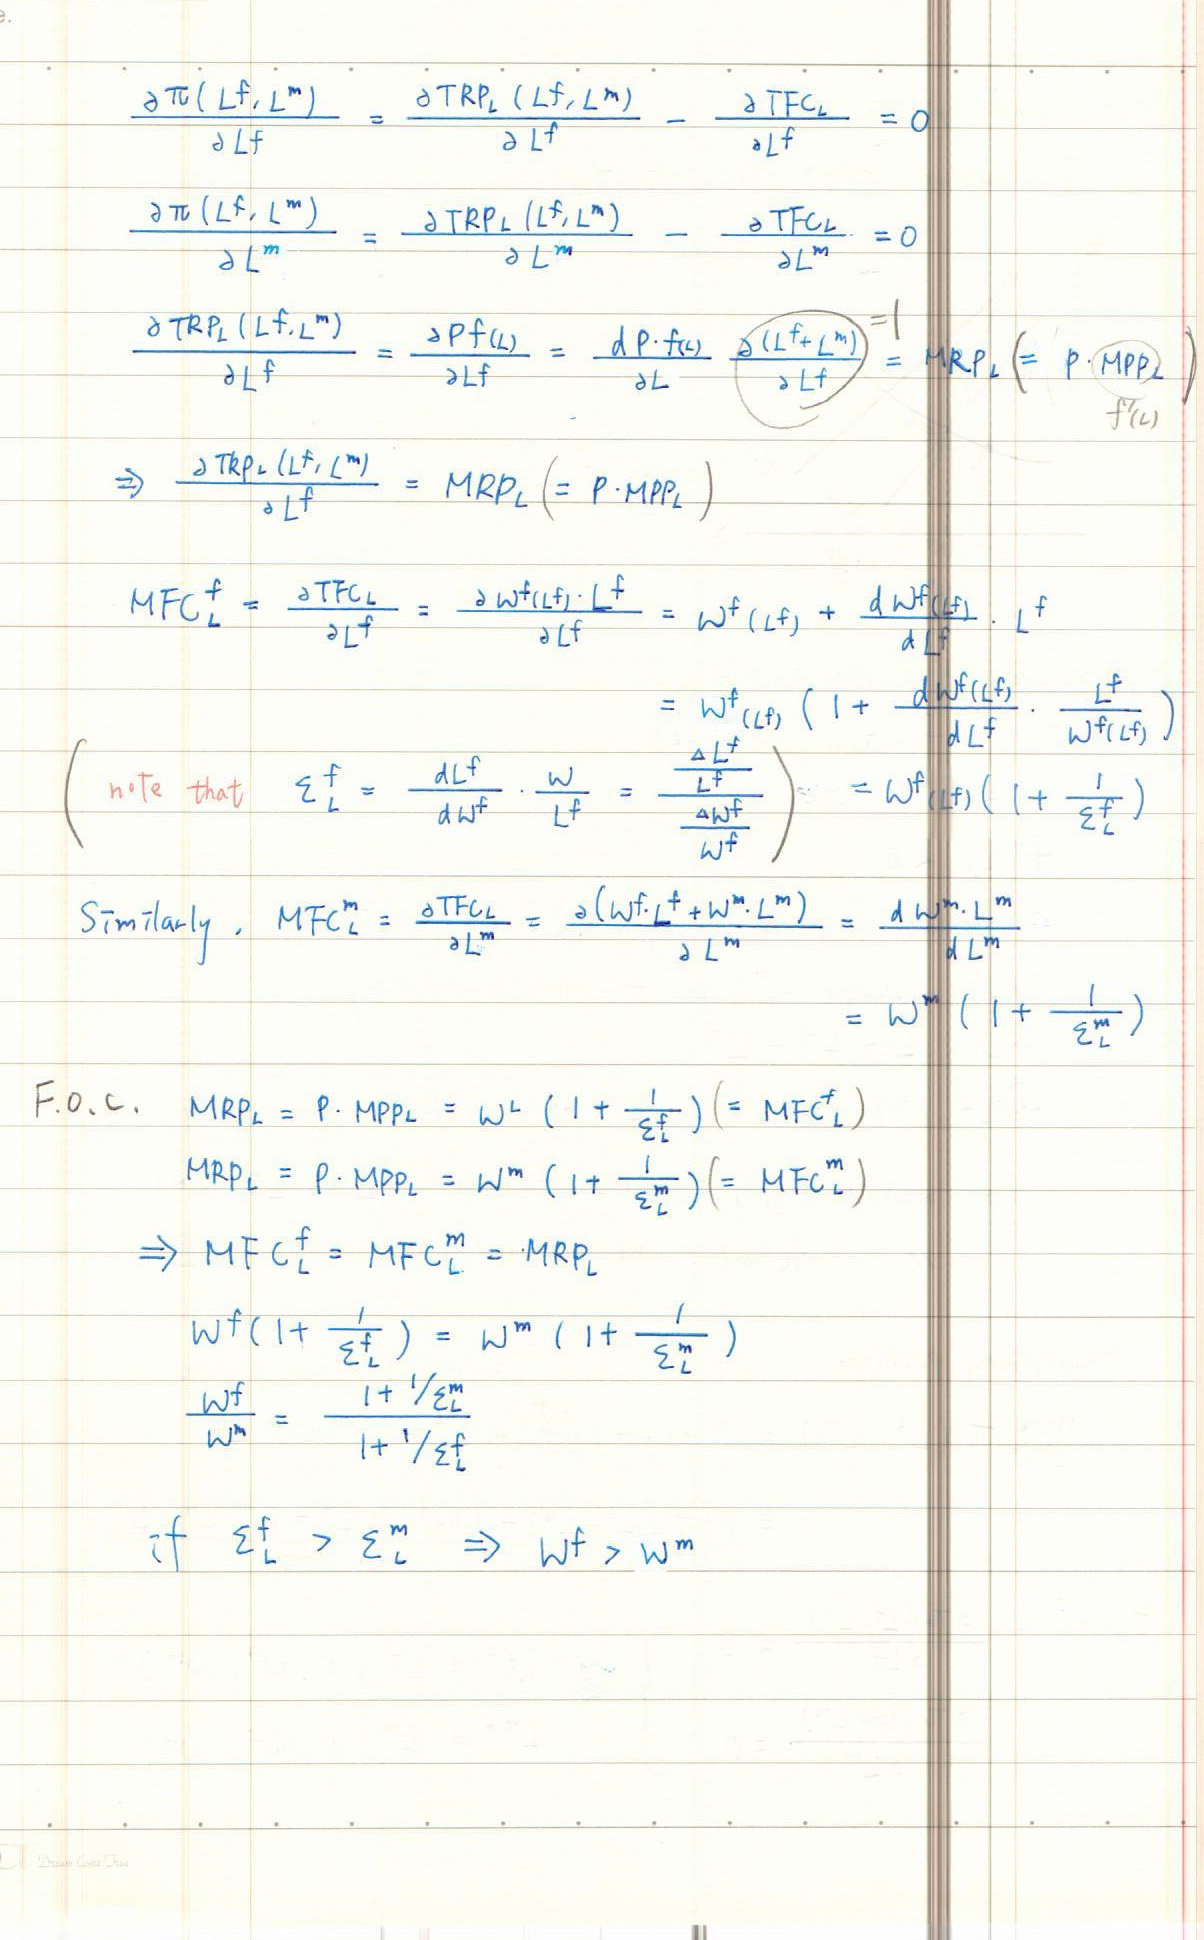 e.
∂π(L^f, L^m)/∂L^f = ∂TRP_L(L^f, L^m)/∂L^f - ∂TFC_L/∂L^f = 0
∂π(L^f, L^m)/∂L^m = ∂TRP_L(L^f, L^m)/∂L^m - ∂TFC_L/∂L^m = 0
∂TRP_L(L^f, L^m)/∂L^f = ∂Pf(L)/∂L^f = dP·f(L)/∂L ∂(L^f+L^m)/∂L^f =1 = MRP_L (= P·MPP_L)
f'(L)
⇒ ∂TRP_L(L^f, L^m)/∂L^f = MRP_L (= P·MPP_L)
MFC_L^f = ∂TFC_L/∂L^f = ∂W^f(L^f)·L^f/∂L^f = W^f(L^f) + dW^f(L^f)/dL^f · L^f
= W^f(L^f) (1 + dW^f(L^f)/dL^f · L^f/W^f(L^f))
(note that Σ_L^f = dL^f/dW^f · W/L^f = (ΔL^f/L^f)/(ΔW^f/W^f)) = W^f(L^f) (1 + 1/Σ_L^f)
Similarly, MFC_L^m = ∂TFC_L/∂L^m = ∂(W^f·L^f + W^m·L^m)/∂L^m = dW^m·L^m/dL^m
= W^m (1 + 1/Σ_L^m)
F.o.c. MRP_L = P·MPP_L = W^L (1 + 1/Σ_L^f) (= MFC_L^f)
MRP_L = P·MPP_L = W^m (1 + 1/Σ_L^m) (= MFC_L^m)
⇒ MFC_L^f = MFC_L^m = MRP_L
W^f (1 + 1/Σ_L^f) = W^m (1 + 1/Σ_L^m)
W^f/W^m = (1 + 1/Σ_L^m)/(1 + 1/Σ_L^f)
if Σ_L^f > Σ_L^m ⇒ W^f > W^m
Dream Come True